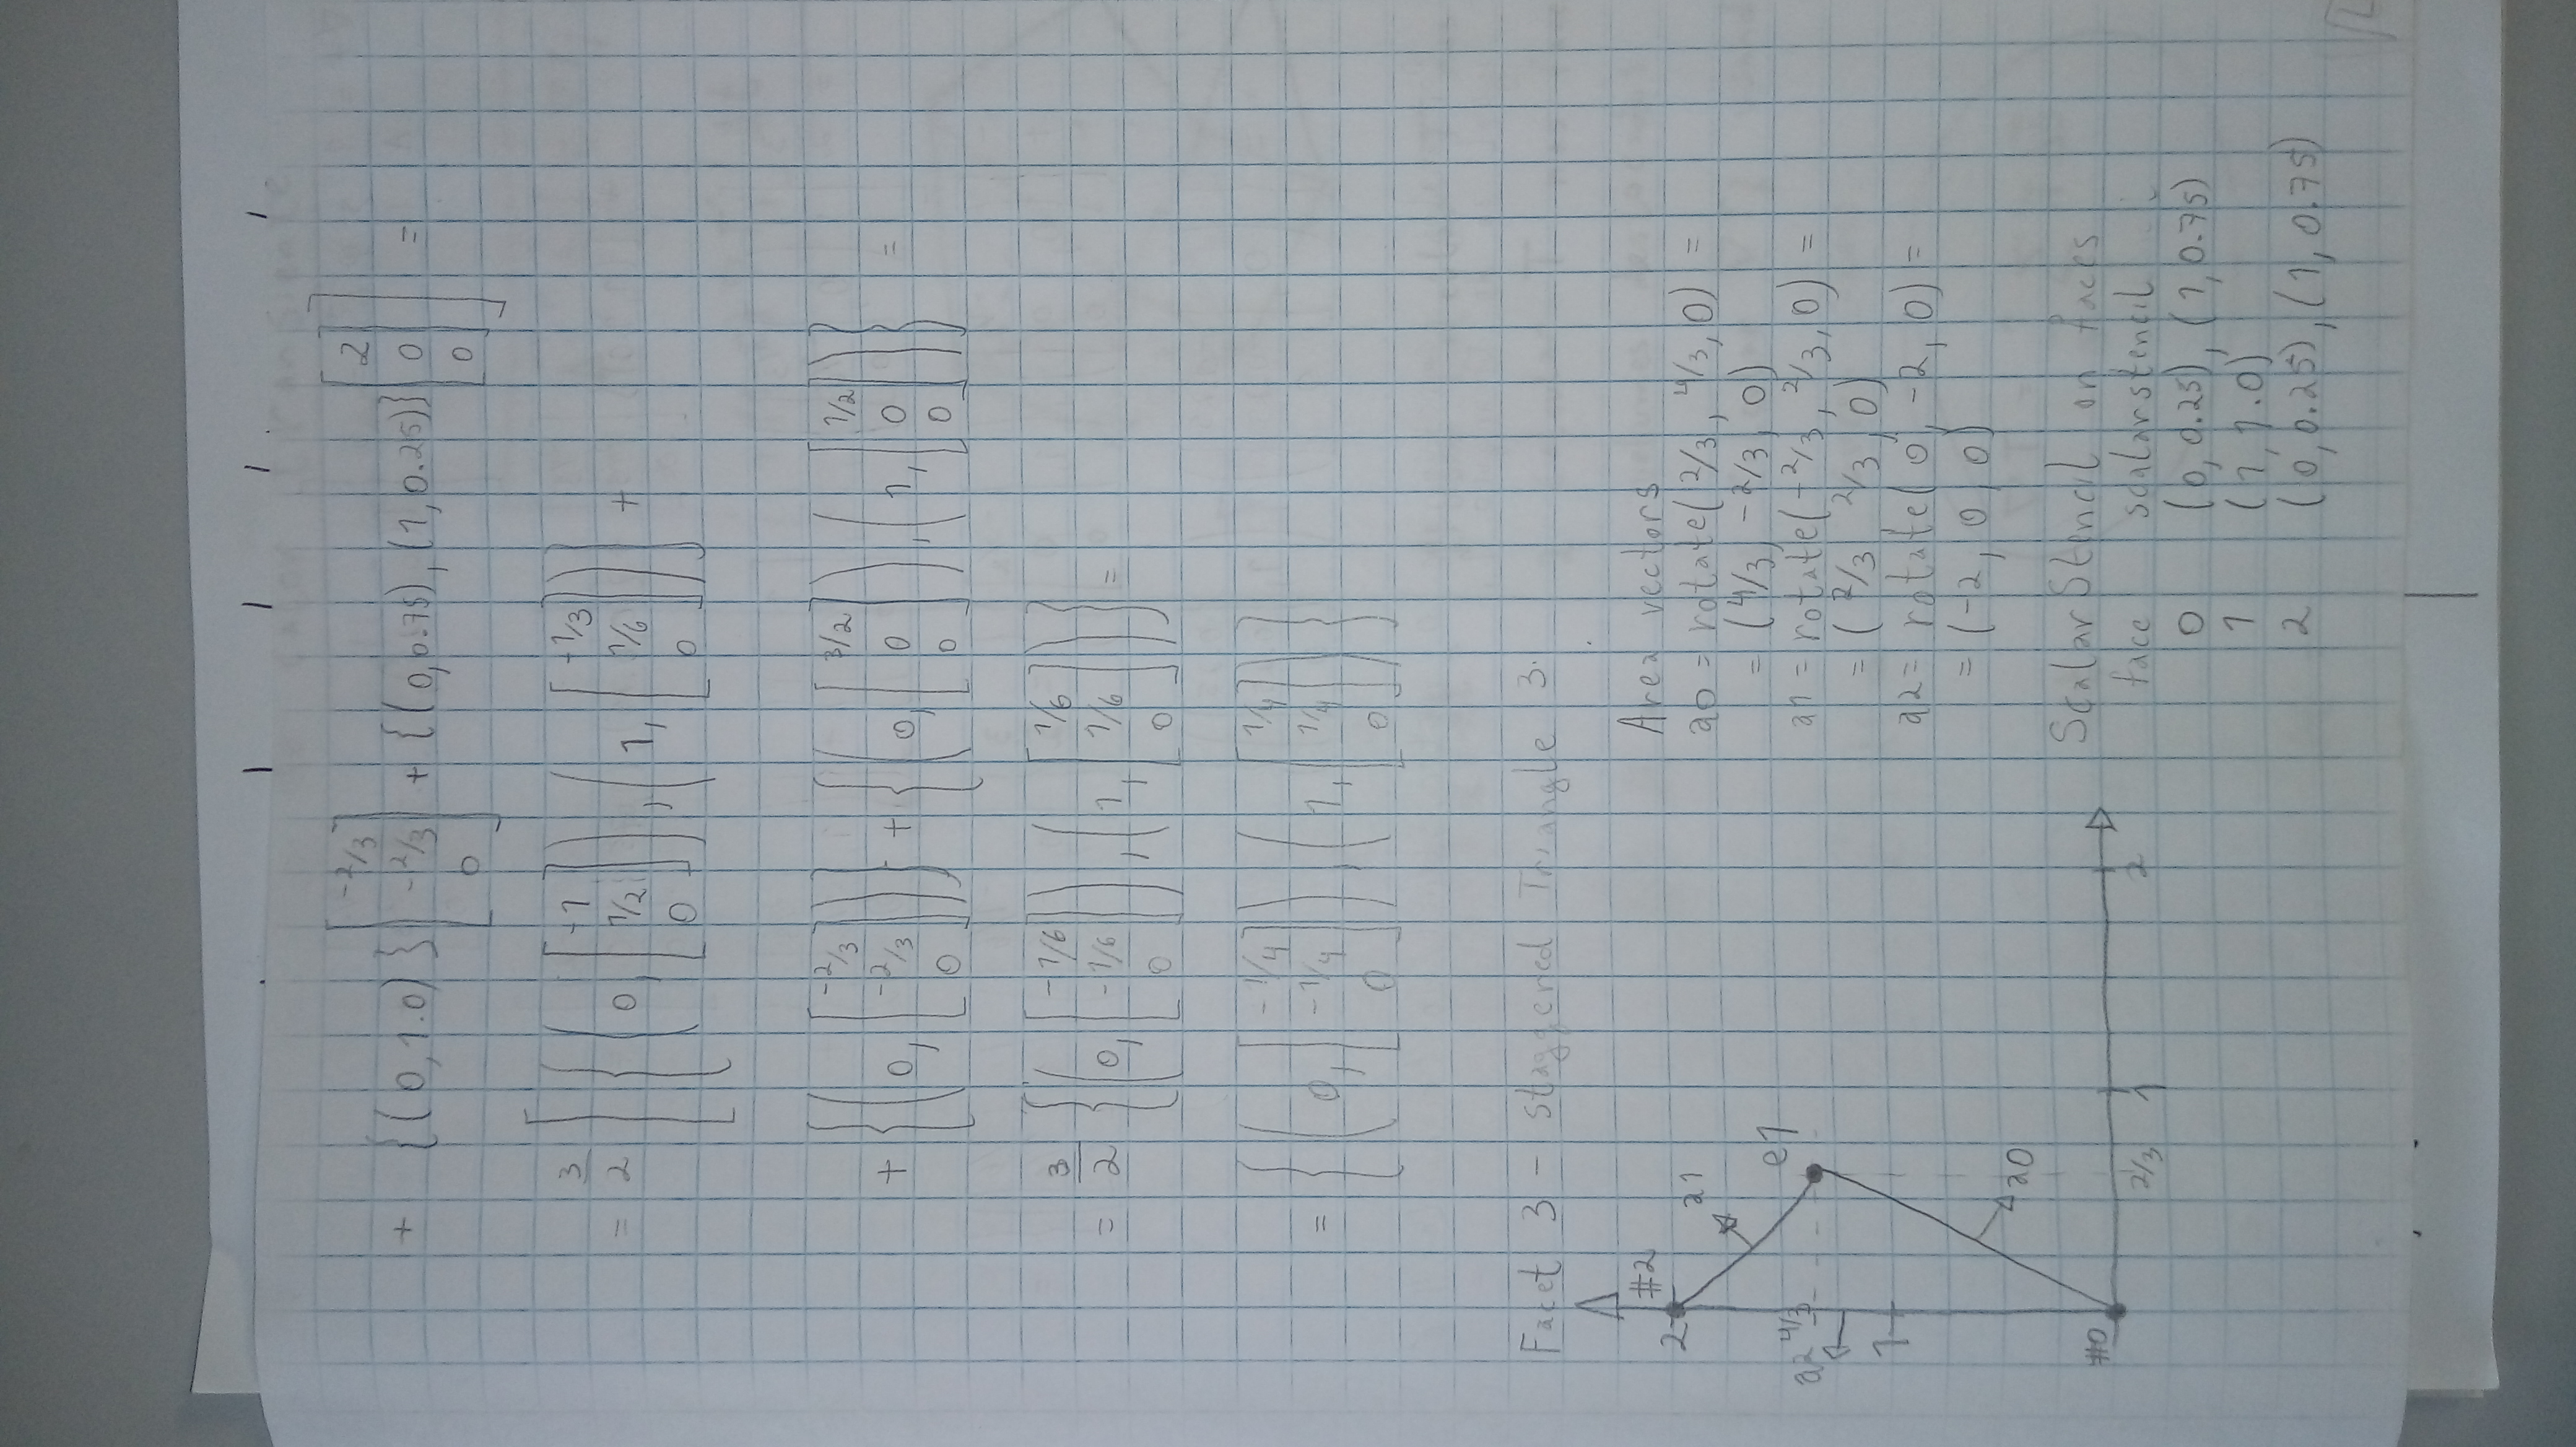 + {(0, 1.0)} [-2/3 -2/3 0] + {(0, 0.75), (1, 0.25)} [2 0 0] ] =
= 3/2 [ { (0, [-1 1/2 0]), (1, [-1/3 1/6 0]) } +
+ { (0, [-2/3 -2/3 0]) } + { (0, [3/2 0 0]), (1, [1/2 0 0]) } =
= 3/2 { (0, [-1/6 -1/6 0]), (1, [1/6 1/6 0]) } =
= { (0, [-1/4 -1/4 0]) (1, [1/4 1/4 0]) }
Facet 3 - Staggered Triangle 3.
#2
2
a1
e1
4/3
a2
1
a0
#0
2/3 1 2
Area vectors
a0 = rotate(2/3, 4/3, 0) =
= (4/3, -2/3, 0)
a1 = rotate(-2/3, 2/3, 0) =
= (2/3, 2/3, 0)
a2 = rotate(0, -2, 0) =
= (-2, 0, 0)
Scalar Stencil on faces
face scalarstencil
0 (0, 0.25), (1, 0.75)
1 (1, 1.0)
2 (0, 0.25), (1, 0.75)